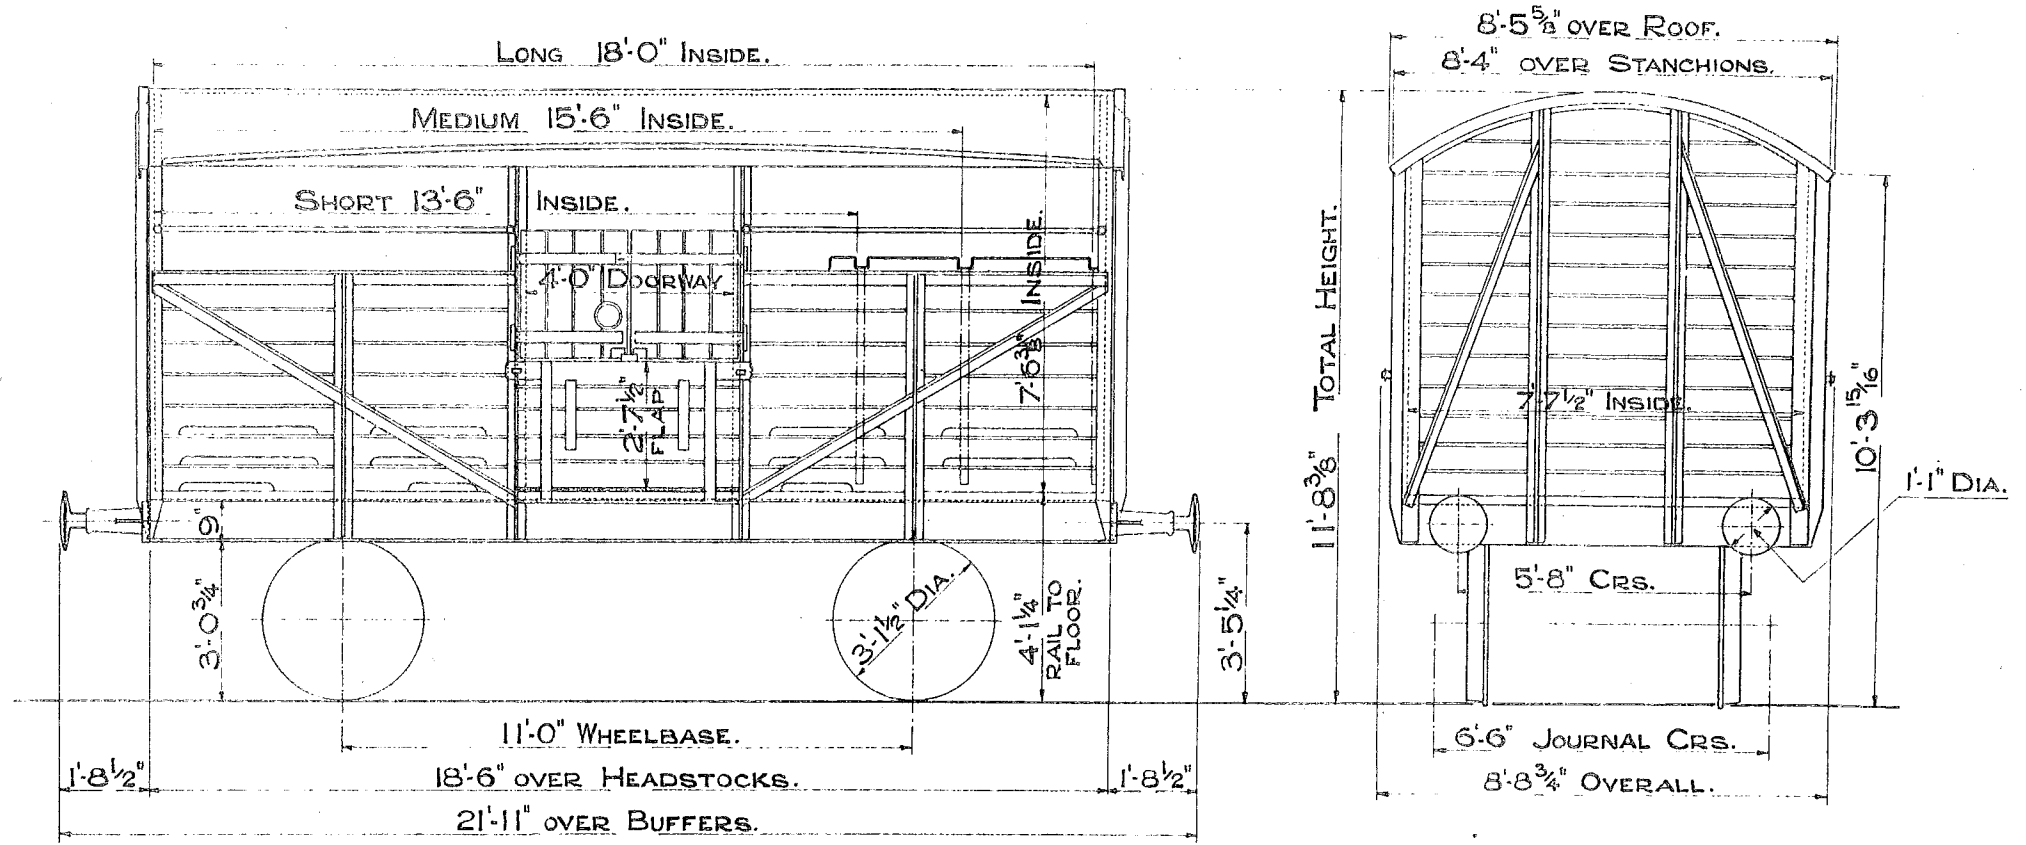 LONG 18'-0" INSIDE.
MEDIUM 15'-6" INSIDE.
SHORT 13'-6" INSIDE.
4'-0" DOORWAY
2'-7½" FLAP
7'-6¾" INSIDE.
9"
3'-0¾"
3'-1½" DIA.
4'-1¼"
RAIL TO
FLOOR.
3'-5¼"
11'-0" WHEELBASE.
1'-8½"
18'-6" OVER HEADSTOCKS.
1'-8½"
21'-11" OVER BUFFERS.
8'-5⅝" OVER ROOF.
8'-4" OVER STANCHIONS.
11'-8⅜" TOTAL HEIGHT.
7'-7½" INSIDE.
10'-3 15/16"
1'-1" DIA.
5'-8" CRS.
6'-6" JOURNAL CRS.
8'-8¾" OVERALL.